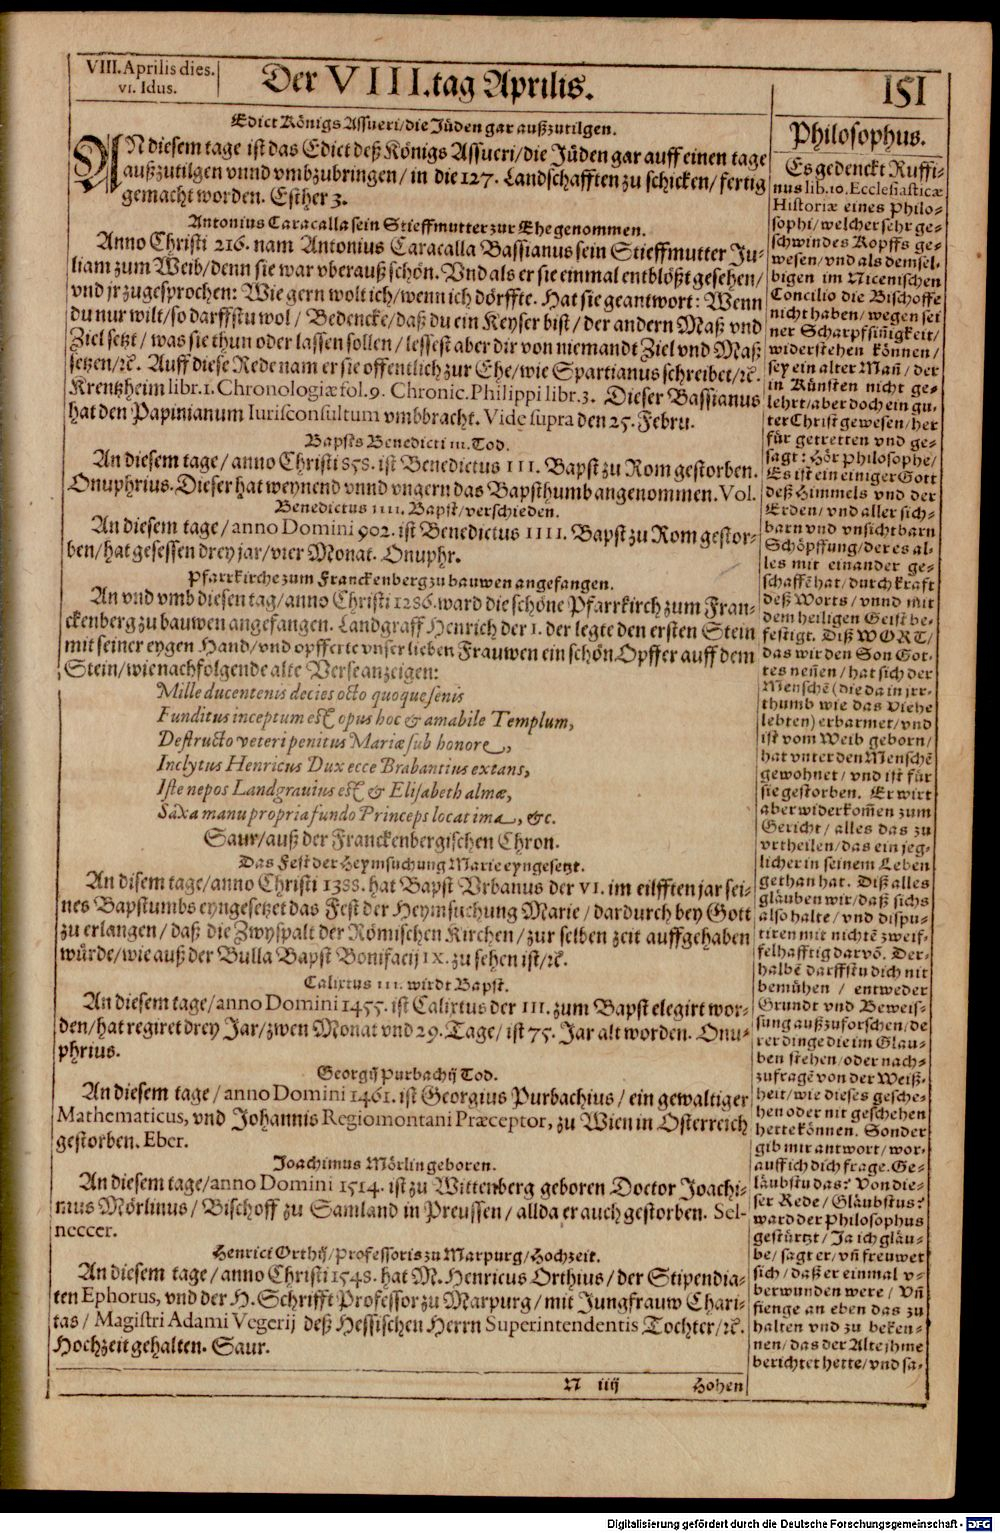 VIII. Aprilis dies.
VI. Idus.
Der VIII. tag Aprilis.
151
Edict Königs Assueri/die Jüden gar außzutilgen.
AN diesem tage ist das Edict deß Königs Assueri/die Jüden gar auff einen tage
außzutilgen vnnd vmbzubringen/ in die 127. Landschafften zu schicken/ fertig
gemacht worden. Esther 3.
Antonius Caracalla sein Stieffmutter zur Ehe genommen.
Anno Christi 216. nam Antonius Caracalla Bassianus sein Stieffmutter Ju-
liam zum Weib/denn sie war vberauß schön. Vnd als er sie einmal entblößt gesehen/
vnd jr zugesprochen: Wie gern wolt ich/wenn ich dörffte. Hat sie geantwort: Wenn
du nur wilt/so darffstu wol/ Bedencke/daß du ein Keyser bist/der andern Maß vnd
Ziel setzt/ was sie thun oder lassen sollen/ lessest aber dir von niemandt Ziel vnd Maß
setzen/ꝛc. Auff diese Rede nam er sie offentlich zur Ehe/wie Spartianus schreibet/ꝛc.
Krentzheim libr. 1. Chronologiæ fol. 9. Chronic. Philippi libr. 3. Dieser Bassianus
hat den Papinianum Iurisconsultum vmbbracht. Vide supra den 25. Febru.
Bapsts Benedicti III. Tod.
An diesem tage/ anno Christi 858. ist Benedictus III. Bapst zu Rom gestorben.
Onuphrius. Dieser hat weynend vnnd vngern das Bapsthumb angenommen. Vol.
Benedictus IIII. Bapst/verschieden.
An diesem tage/ anno Domini 902. ist Benedictus IIII. Bapst zu Rom gestor-
ben/hat gesessen drey jar/vier Monat. Onuphr.
Pfarrkirche zum Franckenberg zu bauwen angefangen.
An vnd vmb diesen tag/anno Christi 1286. ward die schöne Pfarrkirch zum Fran-
ckenberg zu bauwen angefangen. Landgraff Henrich der I. der legte den ersten Stein
mit seiner eygen Hand/vnd opfferte vnser lieben Frauwen ein schön Opffer auff dem
Stein/wie nachfolgende alte Verse anzeigen:
Mille ducentenis decies octo quoque senis
Funditus inceptum est opus hoc & amabile Templum,
Destructo veteri penitus Mariæ sub honore,
Inclytus Henricus Dux ecce Brabantius extans,
Iste nepos Landgrauius est & Elisabeth almæ,
Saxa manu propria fundo Princeps locat ima, &c.
Saur/auß der Franckenbergischen Chron.
Das Fest der Heymsuchung Marie eyngesetzt.
An disem tage/anno Christi 1388. hat Bapst Vrbanus der VI. im eilfften jar sei-
nes Bapstumbs eyngesetzet das Fest der Heymsuchung Marie/ dardurch bey Gott
zu erlangen/ daß die Zwyspalt der Römischen Kirchen/ zur selben zeit auffgehaben
würde/wie auß der Bulla Bapst Bonifacij IX. zu sehen ist/ꝛc.
Calixtus III. wirdt Bapst.
An diesem tage/anno Domini 1455. ist Calixtus der III. zum Bapst elegirt wor-
den/hat regiret drey Jar/zwen Monat vnd 29. Tage/ ist 75. Jar alt worden. Onu-
phrius.
Georgij Purbachij Tod.
An diesem tage/ anno Domini 1461. ist Georgius Purbachius/ ein gewaltiger
Mathematicus, vnd Johannis Regiomontani Præceptor, zu Wien in Osterreich
gestorben. Eber.
Joachimus Mörlin geboren.
An diesem tage/anno Domini 1514. ist zu Wittenberg geboren Doctor Joachi-
mus Mörlinus/ Bischoff zu Samland in Preussen/ allda er auch gestorben. Sel-
neccer.
Henrici Orthij/Professoris zu Marpurg/Hochzeit.
An diesem tage/ anno Christi 1548. hat M. Henricus Orthius/ der Stipendia-
ten Ephorus, vnd der H. Schrifft Professor zu Marpurg/ mit Jungfrauw Chari-
tas/ Magistri Adami Vegerij deß Hessischen Herrn Superintendentis Tochter/ꝛc.
Hochzeit gehalten. Saur.
N iiij
Hohen
Philosophus.
Es gedenckt Ruffi-
nus lib. 10. Ecclesiasticæ
Historiæ eines Philo-
sophi/welcher sehr ge-
schwindes Kopffs ge-
wesen/vnd als demsel-
bigen im Nicenischen
Concilio die Bischoffe
nicht haben/wegen sei
ner Scharpfsiñigkeit/
widerstehen können/
sey ein alter Mañ/der
in Künsten nicht ge-
lehrt/aber doch ein gu-
ter Christ gewesen/her
für getretten vnd ge-
sagt: Hör Philosophe/
Es ist ein einiger Gott
deß Himmels vnd der
Erden/vnd aller sich-
barn vnd vnsichtbarn
Schöpffung/der es al-
les mit einander ge-
schaffē hat/durch krafft
deß Worts/vnnd mit
dem heiligen Geist be-
festigt. Diß WORT/
das wir den Son Got-
tes neñen/hat sich der
Menschē (die da in jrr-
thumb wie das Viehe
lebten) erbarmet/vnd
ist vom Weib geborn/
hat vnter den Menschē
gewohnet/vnd ist für
sie gestorben. Er wirt
aber widerkom̄en zum
Gericht/ alles das zu
vrtheilen/das ein jeg-
licher in seinem Leben
gethan hat. Diß alles
gläuben wir/daß sichs
also halte/vnd dispu-
tiren mit nichtē zweif-
felhafftig darvō. Der-
halbē darffstu dich nit
bemühen/ entweder
Grund vnd Beweis-
sung außzuforschen/de
rer dinge die im Glau-
ben stehen/oder nach-
zufragē von der Weiß-
heit/wie dieses gesche-
hen oder nit geschehen
hette können. Sonder
gib mir antwort/wor-
auff ich dich frage. Ge-
läubstu das? Von die-
ser Rede/Gläubstus?
ward der Philosophus
gestürtzt/Ja ich gläu-
be/sagt er/vñ frewet
sich/daß er einmal v-
berwunden were/ Vñ
fienge an eben das zu
halten vnd zu beken-
nen/das der Alte jhme
berichtet hette/vnd sa-
Digitalisierung gefördert durch die Deutsche Forschungsgemeinschaft - DFG